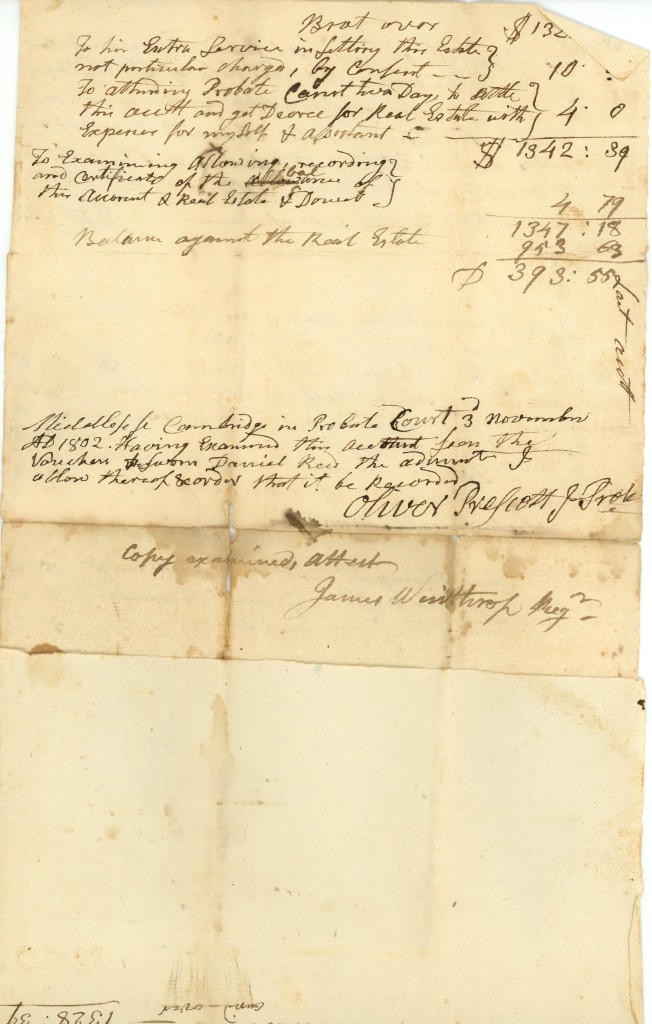 Brot over $ 132
To his Extra Service in setting this Estate
not particular charged, by Consent - - 10 :
To attending Probate Court two Days to settle
this acctt and get Decree for Real Estate with 4 : 0
Expences for my self & assistant
$ 1342 : 39
To Examining allowing, recording
and Certificate of the
this Account & Real Estate & Dower 4 79
1347 : 18
Balance against the Real Estate 953 63
$ 393 : 55
Last acctt
Middlesex Cambridge in Probate Court 3 November
AD 1802. Having Examined this account seen the
Vouchers & Sworn Daniel Reed the adminr I
allow thereof & order that it be Recorded
Oliver Prescott J. Prob
Copy examined, Attest
James Winthrop Regr
1328 : 39